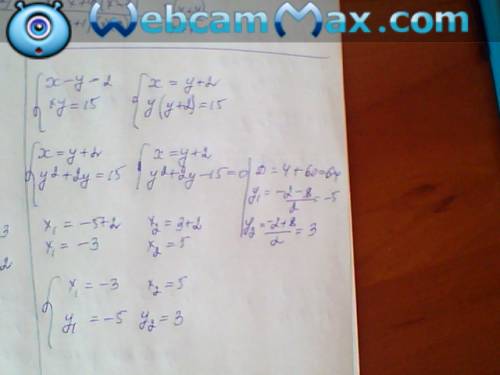 WebcamMax.com
{ x - y = 2
xy = 15
{ x = y+2
y(y+2) = 15
{ x = y+2
y² + 2y = 15
{ x = y+2
y² + 2y - 15 = 0
D = 4 + 60 = 64
y₁ = (-2-8)/2 = -5
y₂ = (-2+8)/2 = 3
x₁ = -5+2
x₁ = -3
x₂ = 3+2
x₂ = 5
{ x₁ = -3   x₂ = 5
y₁ = -5   y₂ = 3
3
2